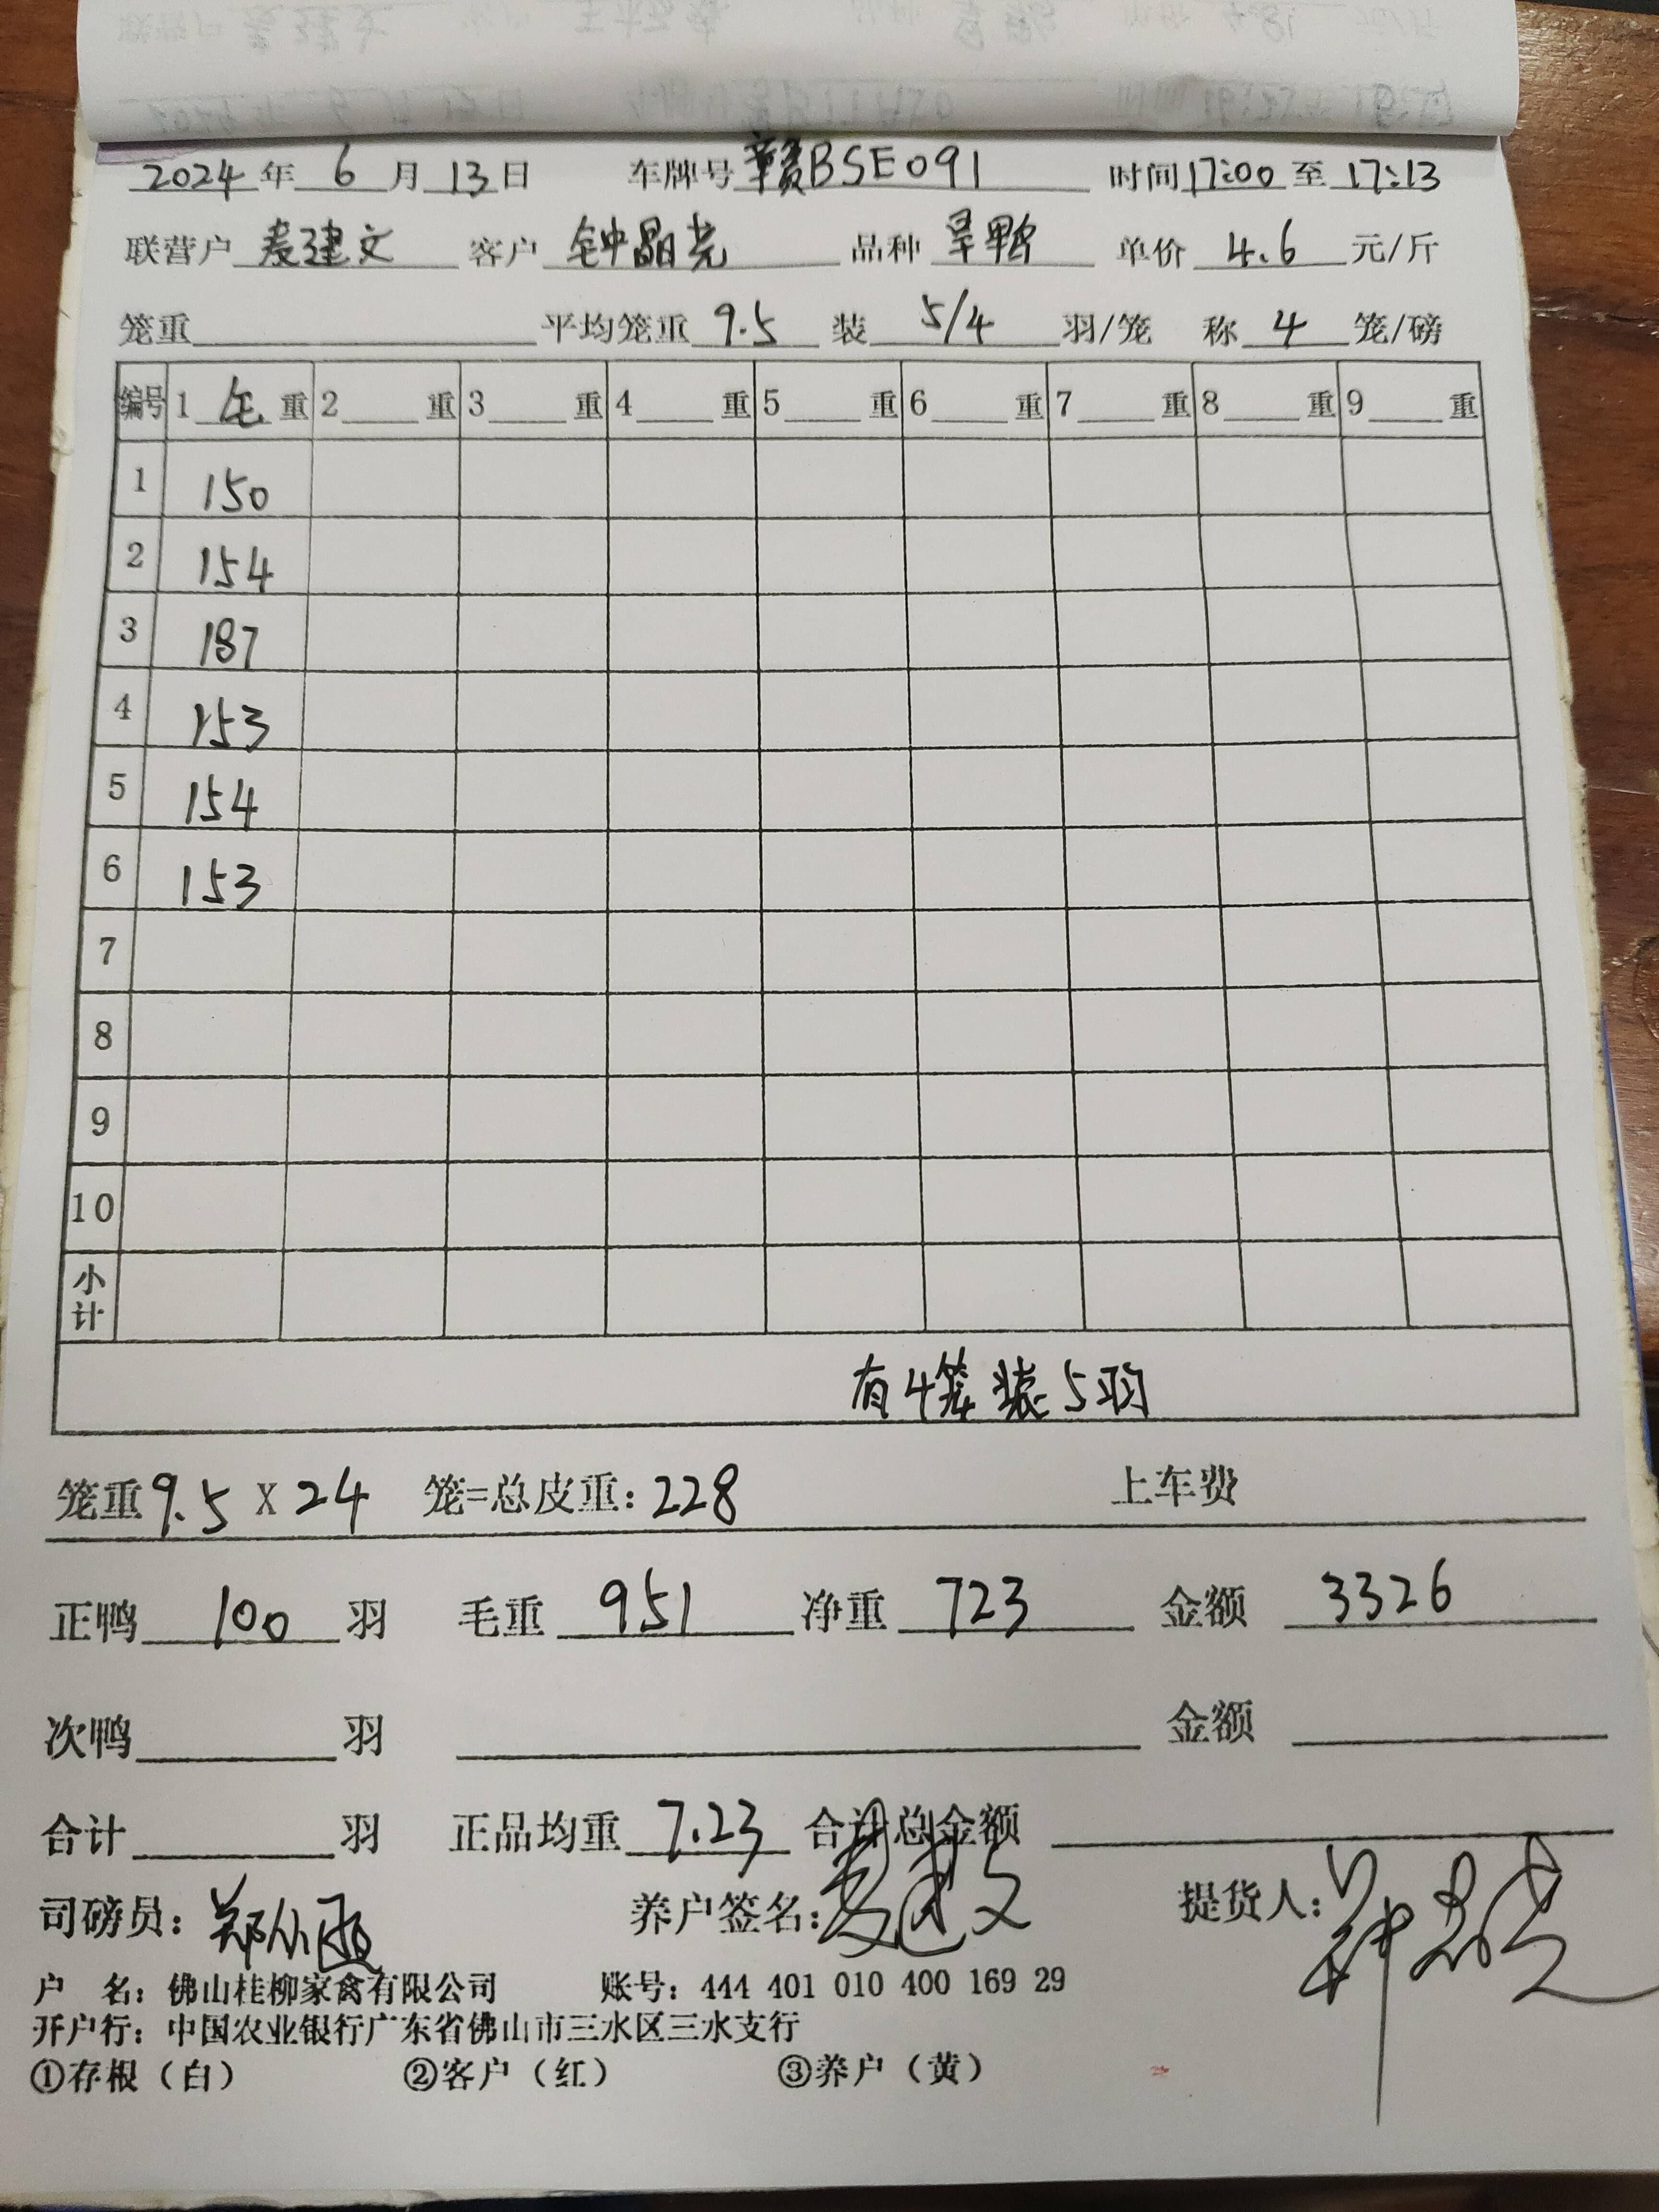 2024年 6 月 13 日 车牌号 赣BSE091 时间 17:00 至 17:13
联营户 麦建文 客户 钟晶光 品种 旱鸭 单价 4.6 元/斤
笼重 平均笼重 9.5 装 5/4 羽/笼 称 4 笼/磅
编号 1 毛 重 2 重 3 重 4 重 5 重 6 重 7 重 8 重 9 重
1 150
2 154
3 187
4 153
5 154
6 153
7
8
9
10
小计
有4笼装5羽
笼重 9.5 X 24 笼=总皮重: 228 上车费
正鸭 100 羽 毛重 951 净重 723 金额 3326
次鸭 羽 金额
合计 羽 正品均重 7.23 合计总金额
司磅员: 养户签名: 麦建文 提货人:
户 名: 佛山桂柳家禽有限公司 账号: 444 401 010 400 169 29
开户行: 中国农业银行广东省佛山市三水区三水支行
①存根（白） ②客户（红） ③养户（黄）